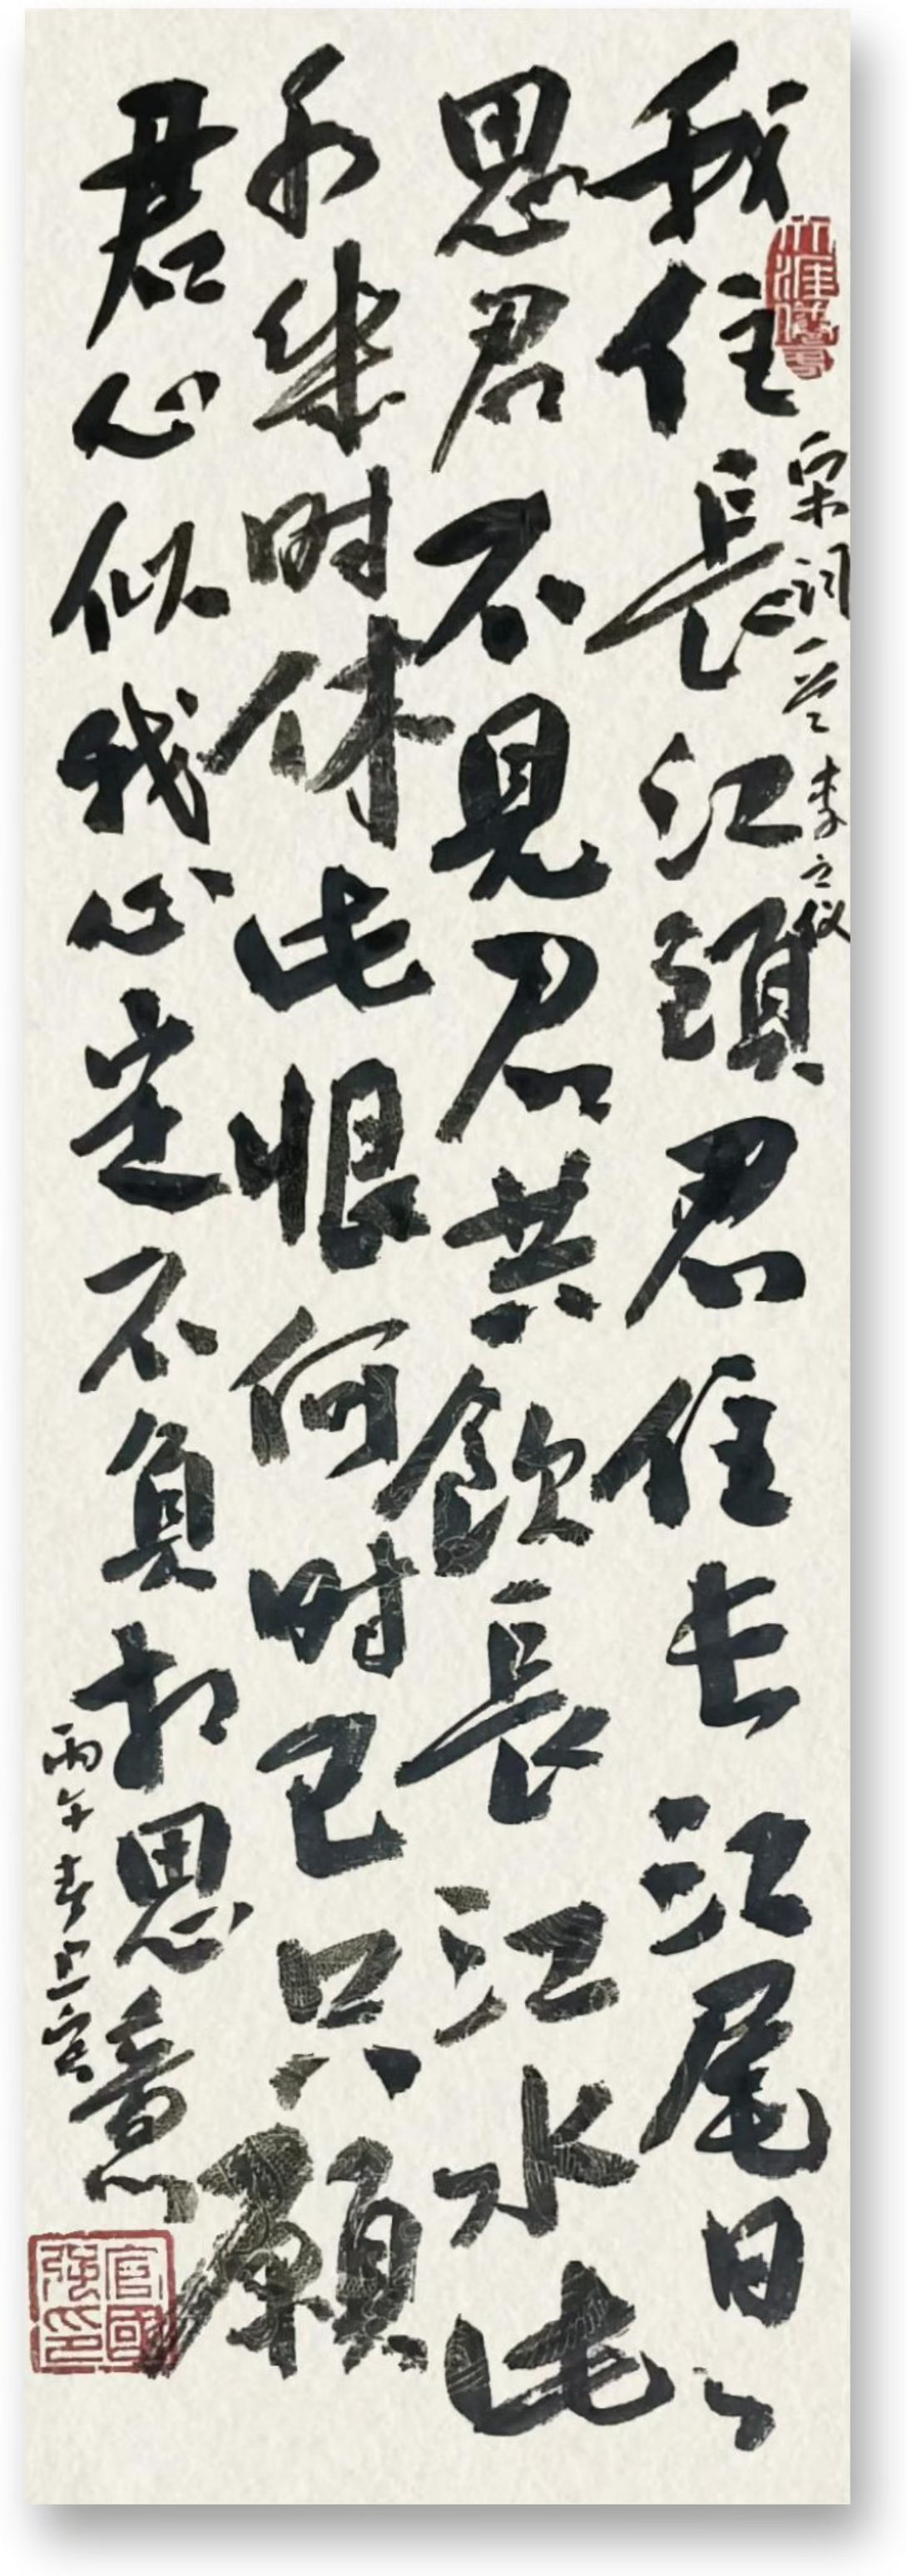 宋词一首 李之仪
我住長江頭君住长江尾日々
思君不見君共飲長江水此
水幾时休此恨何时已只願
君心似我心定不負相思意
丙午春上官
官國強印